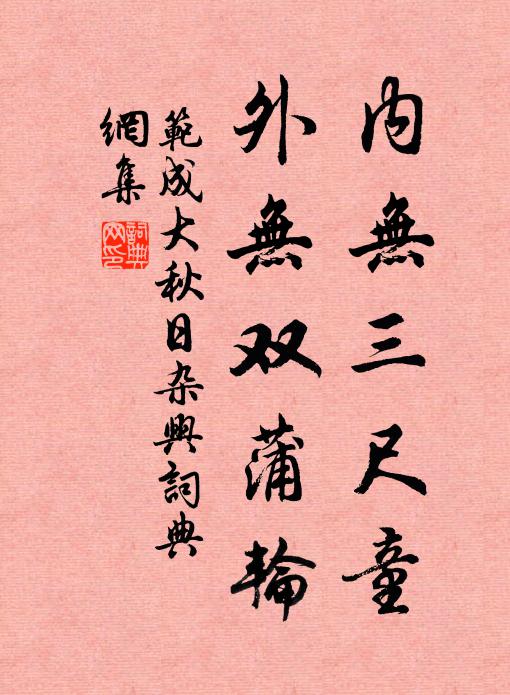 内無三尺童
外無双蒲輪
範成大秋日杂興詞典
網集
詞典
网印